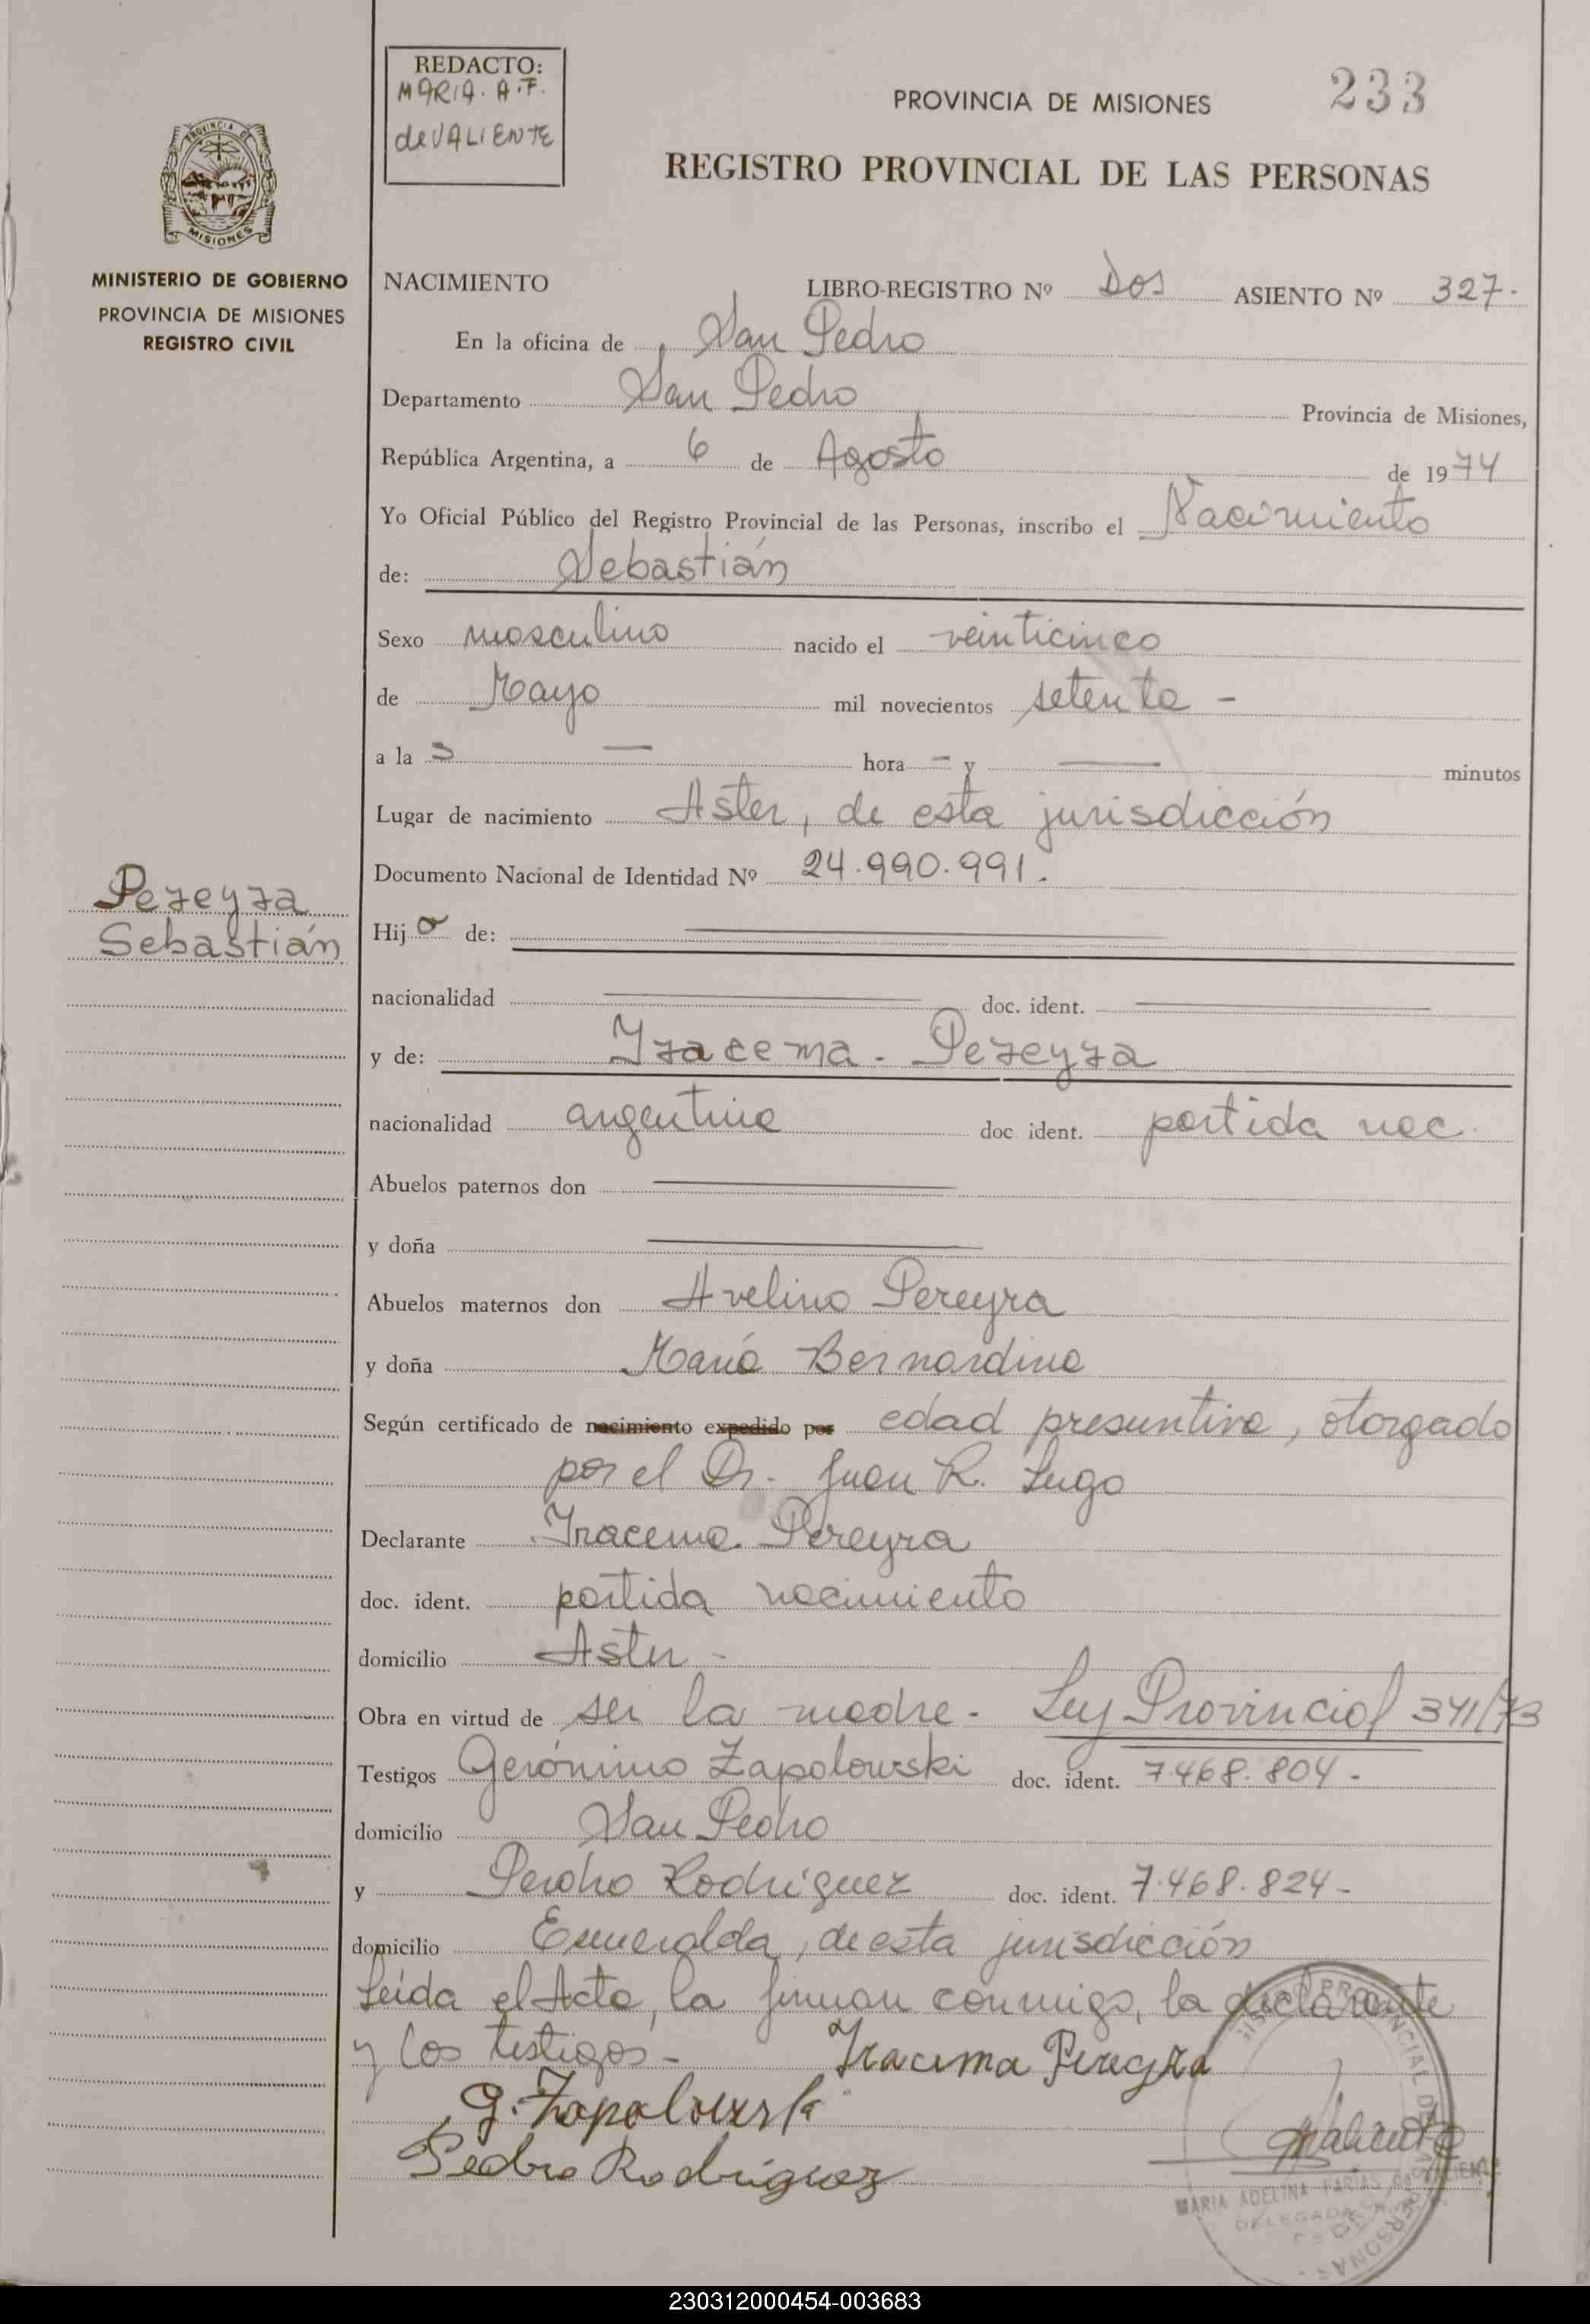 REDACTO:
MARIA. A.F.
de VALIENTE
PROVINCIA DE MISIONES
233
REGISTRO PROVINCIAL DE LAS PERSONAS
PROVINCIA DE
MISIONES
MINISTERIO DE GOBIERNO
PROVINCIA DE MISIONES
REGISTRO CIVIL
NACIMIENTO LIBRO-REGISTRO Nº Dos ASIENTO Nº 327.
En la oficina de San Pedro
Departamento San Pedro Provincia de Misiones,
República Argentina, a 6 de Agosto de 1974
Yo Oficial Público del Registro Provincial de las Personas, inscribo el Nacimiento
de: Sebastián
Sexo masculino nacido el veinticinco
de Mayo mil novecientos setenta -
a la s — hora - y — minutos
Lugar de nacimiento Aster, de esta jurisdicción
Documento Nacional de Identidad Nº 24.990.991.
Pereyra
Sebastián
Hijo de: —
nacionalidad — doc. ident. —
y de: Iracema. Pereyra
nacionalidad argentina doc ident. partida nac.
Abuelos paternos don —
y doña —
Abuelos maternos don Avelino Pereyra
y doña María Bernardina
Según certificado de nacimiento expedido por edad presuntiva, otorgado
por el Dr. Juan R. Lugo
Declarante Iracema. Pereyra
doc. ident. partida nacimiento
domicilio Aster -
Obra en virtud de ser la madre. Ley Provincial 341/73
Testigos Gerónimo Zapolowski doc. ident. 7.468.804 -
domicilio San Pedro
y Pedro Rodríguez doc. ident. 7.468.824 -
domicilio Esmeralda, de esta jurisdicción
Leída el Acta, la firman conmigo, la declarante
y los testigos - Iracema Pereyra
G. Zapolowski
Pedro Rodriguez
MARIA ADELINA FARIAS de VALIENTE
DELEGADA
230312000454-003683